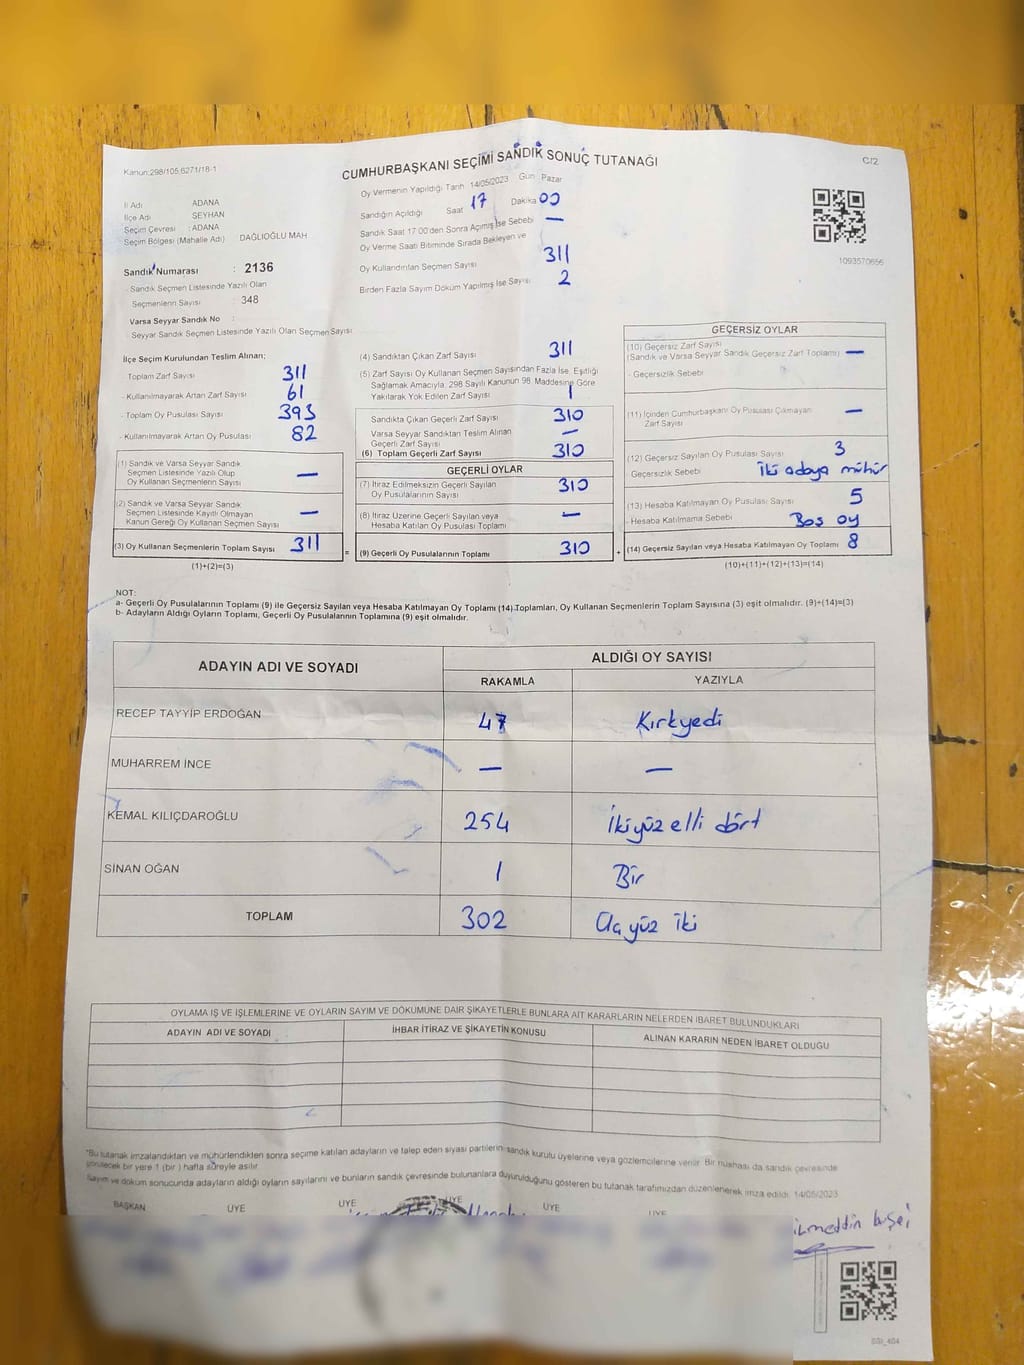 Kanun:298/105,6271/18-1
CUMHURBAŞKANI SEÇİMİ SANDIK SONUÇ TUTANAĞI
C/2
Oy Vermenin Yapıldığı Tarih 14/05/2023 Gün Pazar
İl Adı ADANA
İlçe Adı SEYHAN
Seçim Çevresi : ADANA
Seçim Bölgesi (Mahalle Adı) DAĞLIOĞLU MAH
Sandık Numarası : 2136
- Sandık Seçmen Listesinde Yazılı Olan
Seçmenlerin Sayısı : 348
Varsa Seyyar Sandık No :
- Seyyar Sandık Seçmen Listesinde Yazılı Olan Seçmen Sayısı
Sandığın Açıldığı Saat 17 Dakika 00
Sandık Saat 17:00'den Sonra Açımış İse Sebebi —
Oy Verme Saati Bitiminde Sırada Bekleyen ve
Oy Kullandırılan Seçmen Sayısı 311
Birden Fazla Sayım Döküm Yapılmış İse Sayısı 2
1093570656
İlçe Seçim Kurulundan Teslim Alınan;
Toplam Zarf Sayısı 311
- Kullanılmayarak Artan Zarf Sayısı 61
- Toplam Oy Pusulası Sayısı 393
- Kullanılmayarak Artan Oy Pusulası 82
(1) Sandık ve Varsa Seyyar Sandık
Seçmen Listesinde Yazılı Olup
Oy Kullanan Seçmenlerin Sayısı —
(2) Sandık ve Varsa Seyyar Sandık
Seçmen Listesinde Kayıtlı Olmayan
Kanun Gereği Oy Kullanan Seçmen Sayısı —
(3) Oy Kullanan Seçmenlerin Toplam Sayısı 311
(1)+(2)=(3)
=
(4) Sandıktan Çıkan Zarf Sayısı 311
(5) Zarf Sayısı Oy Kullanan Seçmen Sayısından Fazla İse, Eşitliği
Sağlamak Amacıyla, 298 Sayılı Kanunun 98. Maddesine Göre
Yakılarak Yok Edilen Zarf Sayısı 1
Sandıkta Çıkan Geçerli Zarf Sayısı 310
Varsa Seyyar Sandıktan Teslim Alınan
Geçerli Zarf Sayısı —
(6) Toplam Geçerli Zarf Sayısı 310
GEÇERLİ OYLAR
(7) İtiraz Edilmeksizin Geçerli Sayılan
Oy Pusulalarının Sayısı 310
(8) İtiraz Üzerine Geçerli Sayılan veya
Hesaba Katılan Oy Pusulası Toplamı —
(9) Geçerli Oy Pusulalarının Toplamı 310
+
GEÇERSİZ OYLAR
(10) Geçersiz Zarf Sayısı
(Sandık ve Varsa Seyyar Sandık Geçersiz Zarf Toplamı) —
- Geçersizlik Sebebi
(11) İçinden Cumhurbaşkanı Oy Pusulası Çıkmayan
Zarf Sayısı —
(12) Geçersiz Sayılan Oy Pusulası Sayısı 3
Geçersizlik Sebebi iki adaya mühür
(13) Hesaba Katılmayan Oy Pusulası Sayısı 5
- Hesaba Katılmama Sebebi Boş oy
(14) Geçersiz Sayılan veya Hesaba Katılmayan Oy Toplamı 8
(10)+(11)+(12)+(13)=(14)
NOT:
a- Geçerli Oy Pusulalarının Toplamı (9) ile Geçersiz Sayılan veya Hesaba Katılmayan Oy Toplamı (14) Toplamları, Oy Kullanan Seçmenlerin Toplam Sayısına (3) eşit olmalıdır. (9)+(14)=(3)
b- Adayların Aldığı Oyların Toplamı, Geçerli Oy Pusulalarının Toplamına (9) eşit olmalıdır.
ADAYIN ADI VE SOYADI
ALDIĞI OY SAYISI
RAKAMLA YAZIYLA
RECEP TAYYİP ERDOĞAN 47 Kırkyedi
MUHARREM İNCE — —
KEMAL KILIÇDAROĞLU 254 İkiyüz elli dört
SİNAN OĞAN 1 Bir
TOPLAM 302 Üçyüz iki
OYLAMA İŞ VE İŞLEMLERİNE VE OYLARIN SAYIM VE DÖKÜMÜNE DAİR ŞİKAYETLERLE BUNLARA AİT KARARLARIN NELERDEN İBARET BULUNDUKLARI
ADAYIN ADI VE SOYADI İHBAR İTİRAZ VE ŞİKAYETİN KONUSU ALINAN KARARIN NEDEN İBARET OLDUĞU
*Bu tutanak imzalandıktan ve mühürlendikten sonra seçime katılan adayların ve talep eden siyasi partilerin sandık kurulu üyelerine veya gözlemcilerine verilir. Bir nüshası da sandık çevresinde
görülecek bir yere 1 (bir ) hafta süreyle asılır.
Sayım ve döküm sonucunda adayların aldığı oyların sayılarını ve bunların sandık çevresinde bulunanlara duyurulduğunu gösteren bu tutanak tarafımızdan düzenlenerek imza edildi. 14/05/2023
BAŞKAN ÜYE ÜYE ÜYE ÜYE ÜYE
SGI_404